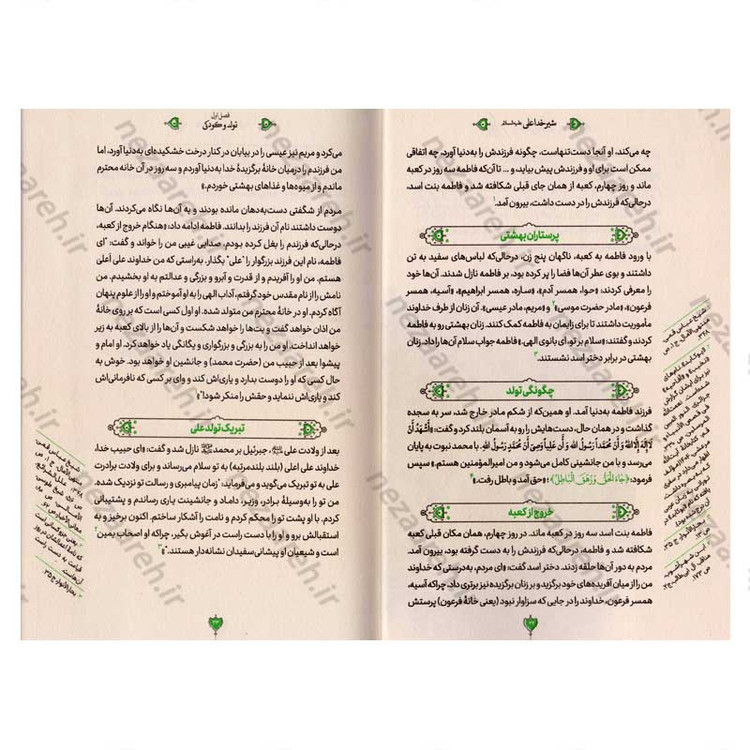 شیر خدا علی علیه‌السلام
چه می‌کند، او آنجا دست‌تنهاست، چگونه فرزندش را به‌دنیا آورد، چه اتفاقی
ممکن است برای او و فرزندش پیش بیاید، و ... تا آن‌که فاطمه سه روز در کعبه
ماند و روز چهارم، کعبه از همان جای قبلی شکافته شد و فاطمه بنت اسد،
درحالی‌که فرزندش را در دست داشت، بیرون آمد.
پرستاران بهشتی
با ورود فاطمه به کعبه، ناگهان پنج زن، درحالی‌که لباس‌های سفید به تن
داشتند و بوی عطر آن‌ها فضا را پر کرده بود، بر فاطمه نازل شدند. آن‌ها خود
را معرفی کردند: «حوا، همسر آدم»، «ساره، همسر ابراهیم»، «آسیه، همسر
فرعون»، «مادر حضرت موسی» و «مریم، مادر عیسی». آن زنان از طرف خداوند
مأموریت داشتند تا برای زایمان به فاطمه کمک کنند. زنان بهشتی رو به فاطمه
کردند و گفتند: «سلام بر تو، ای بانوی الهی.» فاطمه جواب سلام آن‌ها را داد. زنان
بهشتی در برابر دختر اسد نشستند.
چگونگی تولد
فرزند فاطمه به‌دنیا آمد. او همین‌که از شکم مادر خارج شد، سر به سجده
گذاشت و در همان حال، دست‌هایش را رو به آسمان بلند کرد و گفت: «أَشْهَدُ أَنْ
لا إِلَهَ إِلَّا اللهُ وَ أَنَّ مُحَمَّداً رَسُولُ اللهِ وَ أَنَّ عَلِیاً وَصِیُّ مُحَمَّدٍ رَسُولِ اللهِ. با محمد نبوت به پایان
می‌رسد و با من جانشینی کامل می‌شود و من امیرالمؤمنین هستم.» سپس
فرمود: ﴿جَاءَ الْحَقُّ وَ زَهَقَ الْبَاطِلُ﴾؛ «حق آمد و باطل رفت.»
خروج از کعبه
فاطمه بنت اسد سه روز در کعبه ماند. در روز چهارم، همان مکان قبلی کعبه
شکافته شد و فاطمه، درحالی‌که فرزندش را به دست گرفته بود، بیرون آمد.
مردم به دور آن‌ها حلقه زدند. دختر اسد گفت: «ای مردم، به‌درستی که خداوند
من را از میان آفریده‌های خود برگزید و بر زنان برگزیده نیز برتری داد. چراکه آسیه،
همسر فرعون، خداوند را در جایی که سزاوار نبود (یعنی خانهٔ فرعون) پرستش
فصل اول
تولد و کودکی
می‌کرد و مریم نیز عیسی را در بیابان در کنار درخت خشکیده‌ای به‌دنیا آورد، اما
من فرزندم را در میان خانهٔ برگزیدهٔ خدا به‌دنیا آوردم و سه روز در آن خانه محترم
ماندم و از میوه‌ها و غذاهای بهشتی خوردم.»
مردم از شگفتی دست‌به‌دهان مانده بودند و به آن‌ها نگاه می‌کردند. آن‌ها
دوست داشتند نام آن فرزند را بدانند. فاطمه ادامه داد: «هنگام خروج از کعبه،
درحالی‌که فرزندم را بغل کرده بودم، صدایی غیبی من را خواند و گفت: "ای
فاطمه، نام این فرزند بزرگوار را "علی" بگذار. به‌راستی که من خداوند علی اعلی
هستم. من او را آفریدم و از قدرت و آبرو و بزرگی و عدالتم به او بخشیدم. من
نامش را از نام مقدس خود گرفتم، آداب الهی را به او آموختم و او را از علوم پنهان
آگاه کردم. او در خانهٔ محترم من متولد شده. او اول کسی است که بر روی خانهٔ
من اذان خواهد گفت و بت‌ها را خواهد شکست و آن‌ها را از بالای کعبه به زیر
خواهد انداخت. او من را به بزرگی و بزرگواری و یگانگی یاد خواهد کرد. او امام و
پیشوا بعد از حبیب من (حضرت محمد) و جانشین او خواهد بود. خوش به
حال کسی که او را دوست بدارد و یاری‌اش کند و وای بر کسی که نافرمانی‌اش
کند و یاری‌اش ننماید و حقش را منکر شود!"»
تبریک تولد علی
بعد از ولادت علی ﷷ، جبرئیل بر محمد ﷺ نازل شد و گفت: «ای حبیب خدا،
خداوند علی اعلی (بلند بلندمرتبه) به تو سلام می‌رساند و برای ولادت برادرت
علی به تو تبریک می‌گوید و می‌فرماید: "زمان پیامبری و رسالت تو نزدیک شده.
من تو را به‌وسیلهٔ برادر، وزیر، داماد و جانشینت یاری رساندم و پشتیبانی
کردم. با او پشت تو را محکم کردم و نامت را آشکار ساختم. اکنون برخیز و به
استقبالش برو و او را با دست راست در آغوش بگیر، چراکه او اصحاب یمین
است و شیعیان او پیشانی‌سفیدان نشانه‌دار هستند."»
nezareh.ir